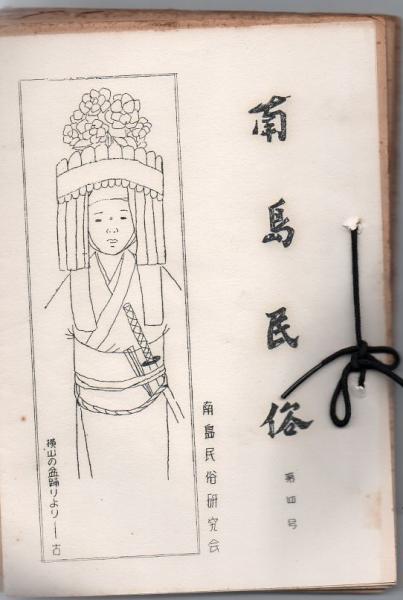 南島民俗
第四号
南島民俗研究会
横山の盆踊りより——古